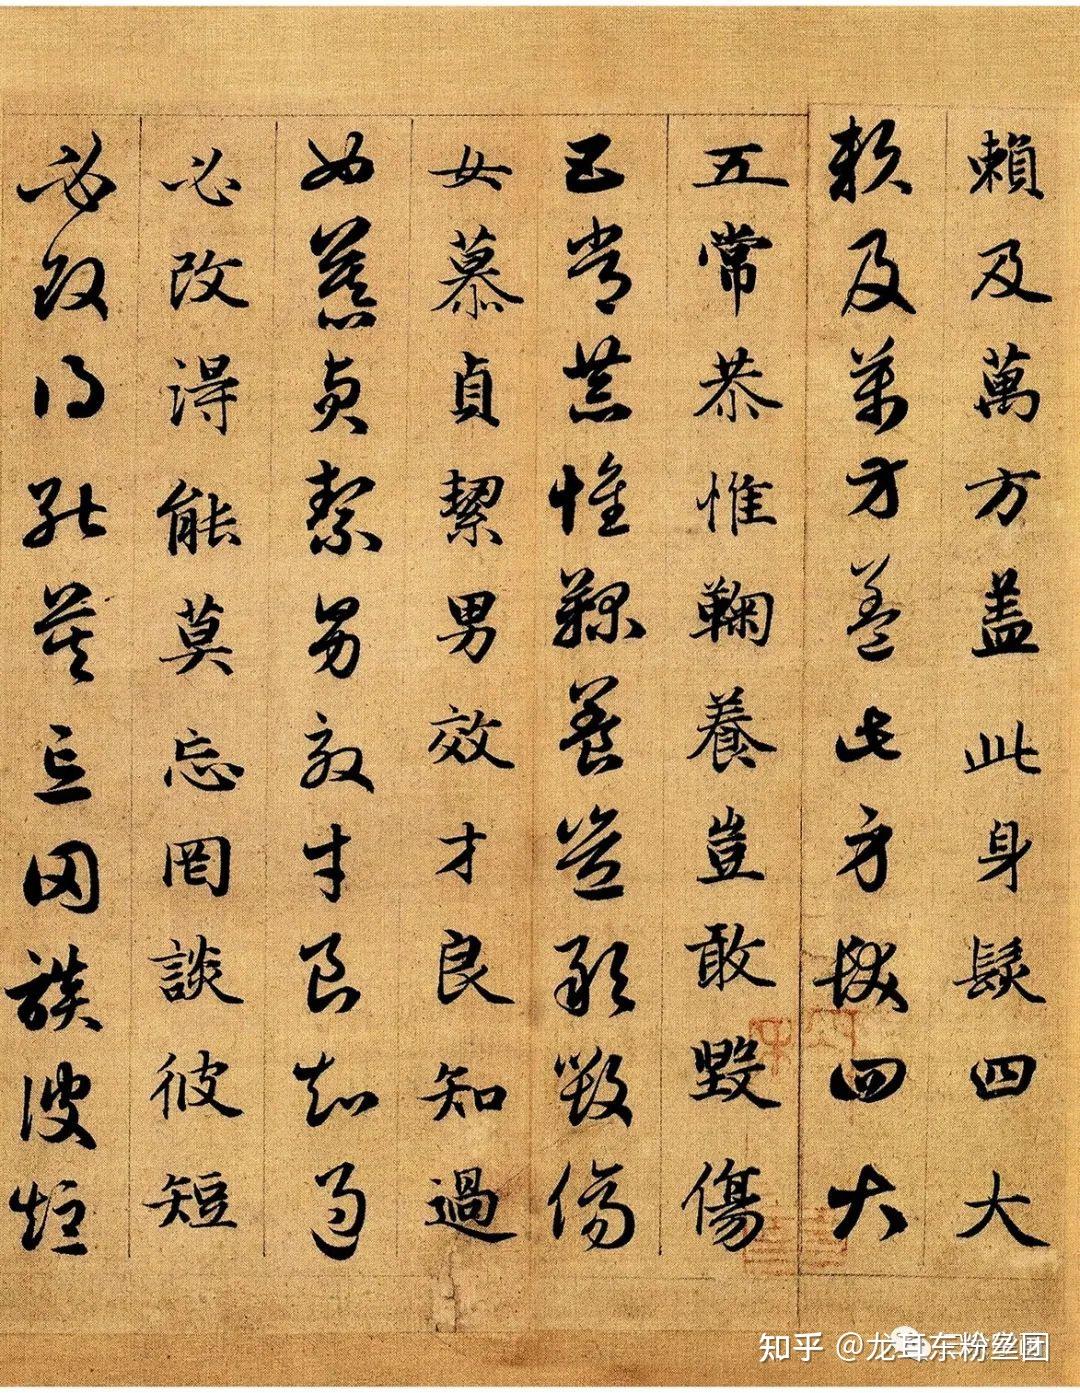 賴及萬方盖此身髮四大
賴及萬方盖此身髮四大
五常恭惟鞠養豈敢毀傷
五常恭惟鞠養豈敢毀傷
女慕貞絜男效才良知過
女慕貞絜男效才良知過
必改得能莫忘罔談彼短
必改得能莫忘罔談彼短
知乎 @龙耳东粉丝团